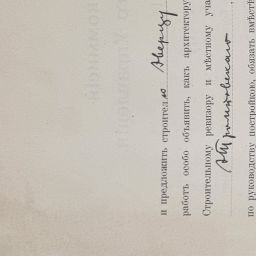 и предложить строителю Аверцу
работъ особо объявить, какъ архитектору
Строительному ревизору и мѣстному уча
по руководству постройкою, обязать вмѣстѣ